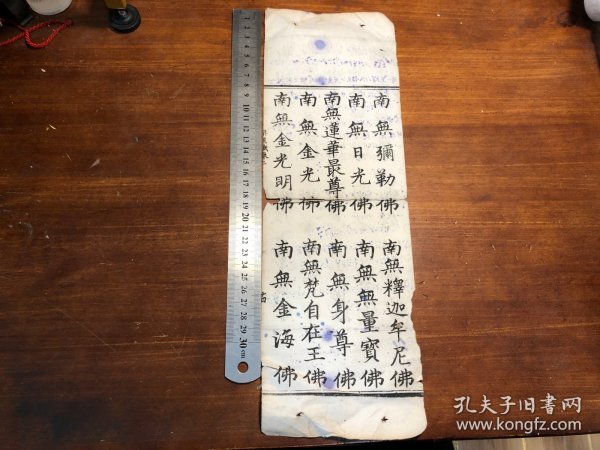 南無彌勒佛
南無日光佛
南無蓮華最尊佛
南無金光佛
南無金光明佛
南無釋迦牟尼佛
南無無量寶佛
南無身尊佛
南無梵自在王佛
南無金海佛
1 2 3 4 5 6 7 8 9 10 11 12 13 14 15 16 17 18 19 20 21 22 23 24 25 26 27 28 29 30 cm
孔夫子旧書网
www.kongfz.com